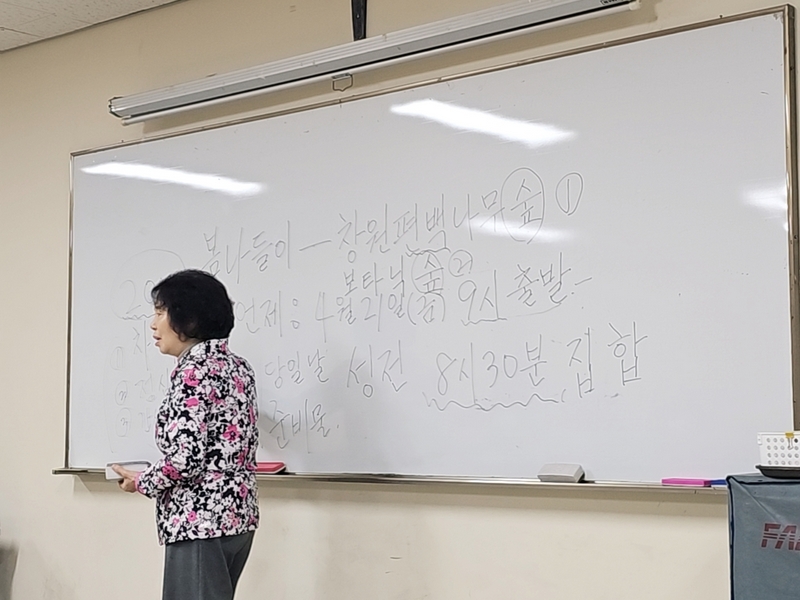 봄나들이 — 창원편백나무숲 ①
보타닉 숲 ②
언제 ○ 4월 21일(금) 9시 출발.-
당일날 성전 8시30분 집합
준비물.